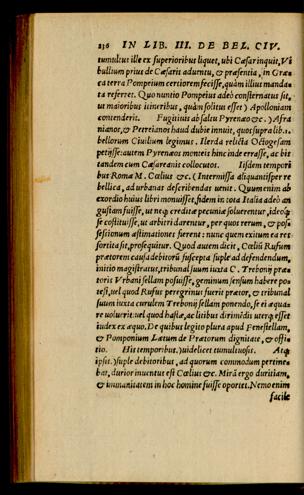 236 IN LIB. III. DE BEL. CIV.
tumultus ille ex superioribus liquet, ubi Cæsar inquit, Vi
bullium prius de Cæsaris aduentu, & præsentia, in Græ
ca terra Pompeium certiorem fecisse, quàm illius manda=
ta referret. Quo nuntio Pompeius adeò consternatus sit,
ut maioribus itineribus, quàm solitus esset) Apolloniam
contenderit. Fugitiuis ab saltu Pyrenæo &c.) Afra
nianos, & Petreianos haud dubie innuit, quos supra lib.1.
bellorum Ciuilium legimus. Ilerda relicta Octogesam
petijsse: autem Pyrenæo monteis hinc inde errasse, ac bis
tandem cum Cæsareanis collocutos. Iisdem tempori
bus Romæ M. Cœlius &c.) Intermissa aliquantisper re
bellica, ad urbanas describendas uenit. Quum enim ab
exordio huius libri monuisset, fidem in tota Italia adeò an
gustam fuisse, ut neq; creditæ pecuniæ soluerentur, ideoq;
se costituisse, ut arbitri darentur, per quos rerum, & pos=
sessionum æstimationes fierent: nunc quem exitum ea res
sortita sit, prosequitur. Quod autem dicit, Cœliũ Rufum
prætorem causa debitorũ suscepta suple ad defendendum,
initio magistratus, tribunal suum iuxta C. Trebonij præ=
toris Vrbani sellam posuisse, geminum sensum habere po=
test, uel quod Rufus peregrinus fuerit prætor, & tribunal
suum iuxta curulem Trebonij sellam ponendo, se ei æqua=
re uoluerit: uel quod hastæ, ac litibus dirimẽdis uterq; esset
iudex ex æquo. De quibus legito plura apud Fenestellam,
& Pomponium Lætum de Prætorum dignitate, & offi=
tio. His temporibus.) uidelicet tumultuosis. Atq;
ipsi.) suple debitoribus, ad quorum commodum pertine=
bat, durior inuentus est Cœlius &c. Mirã ergo duritiam,
& immanitatem in hoc homine fuisse oportet. Nemo enim
facile